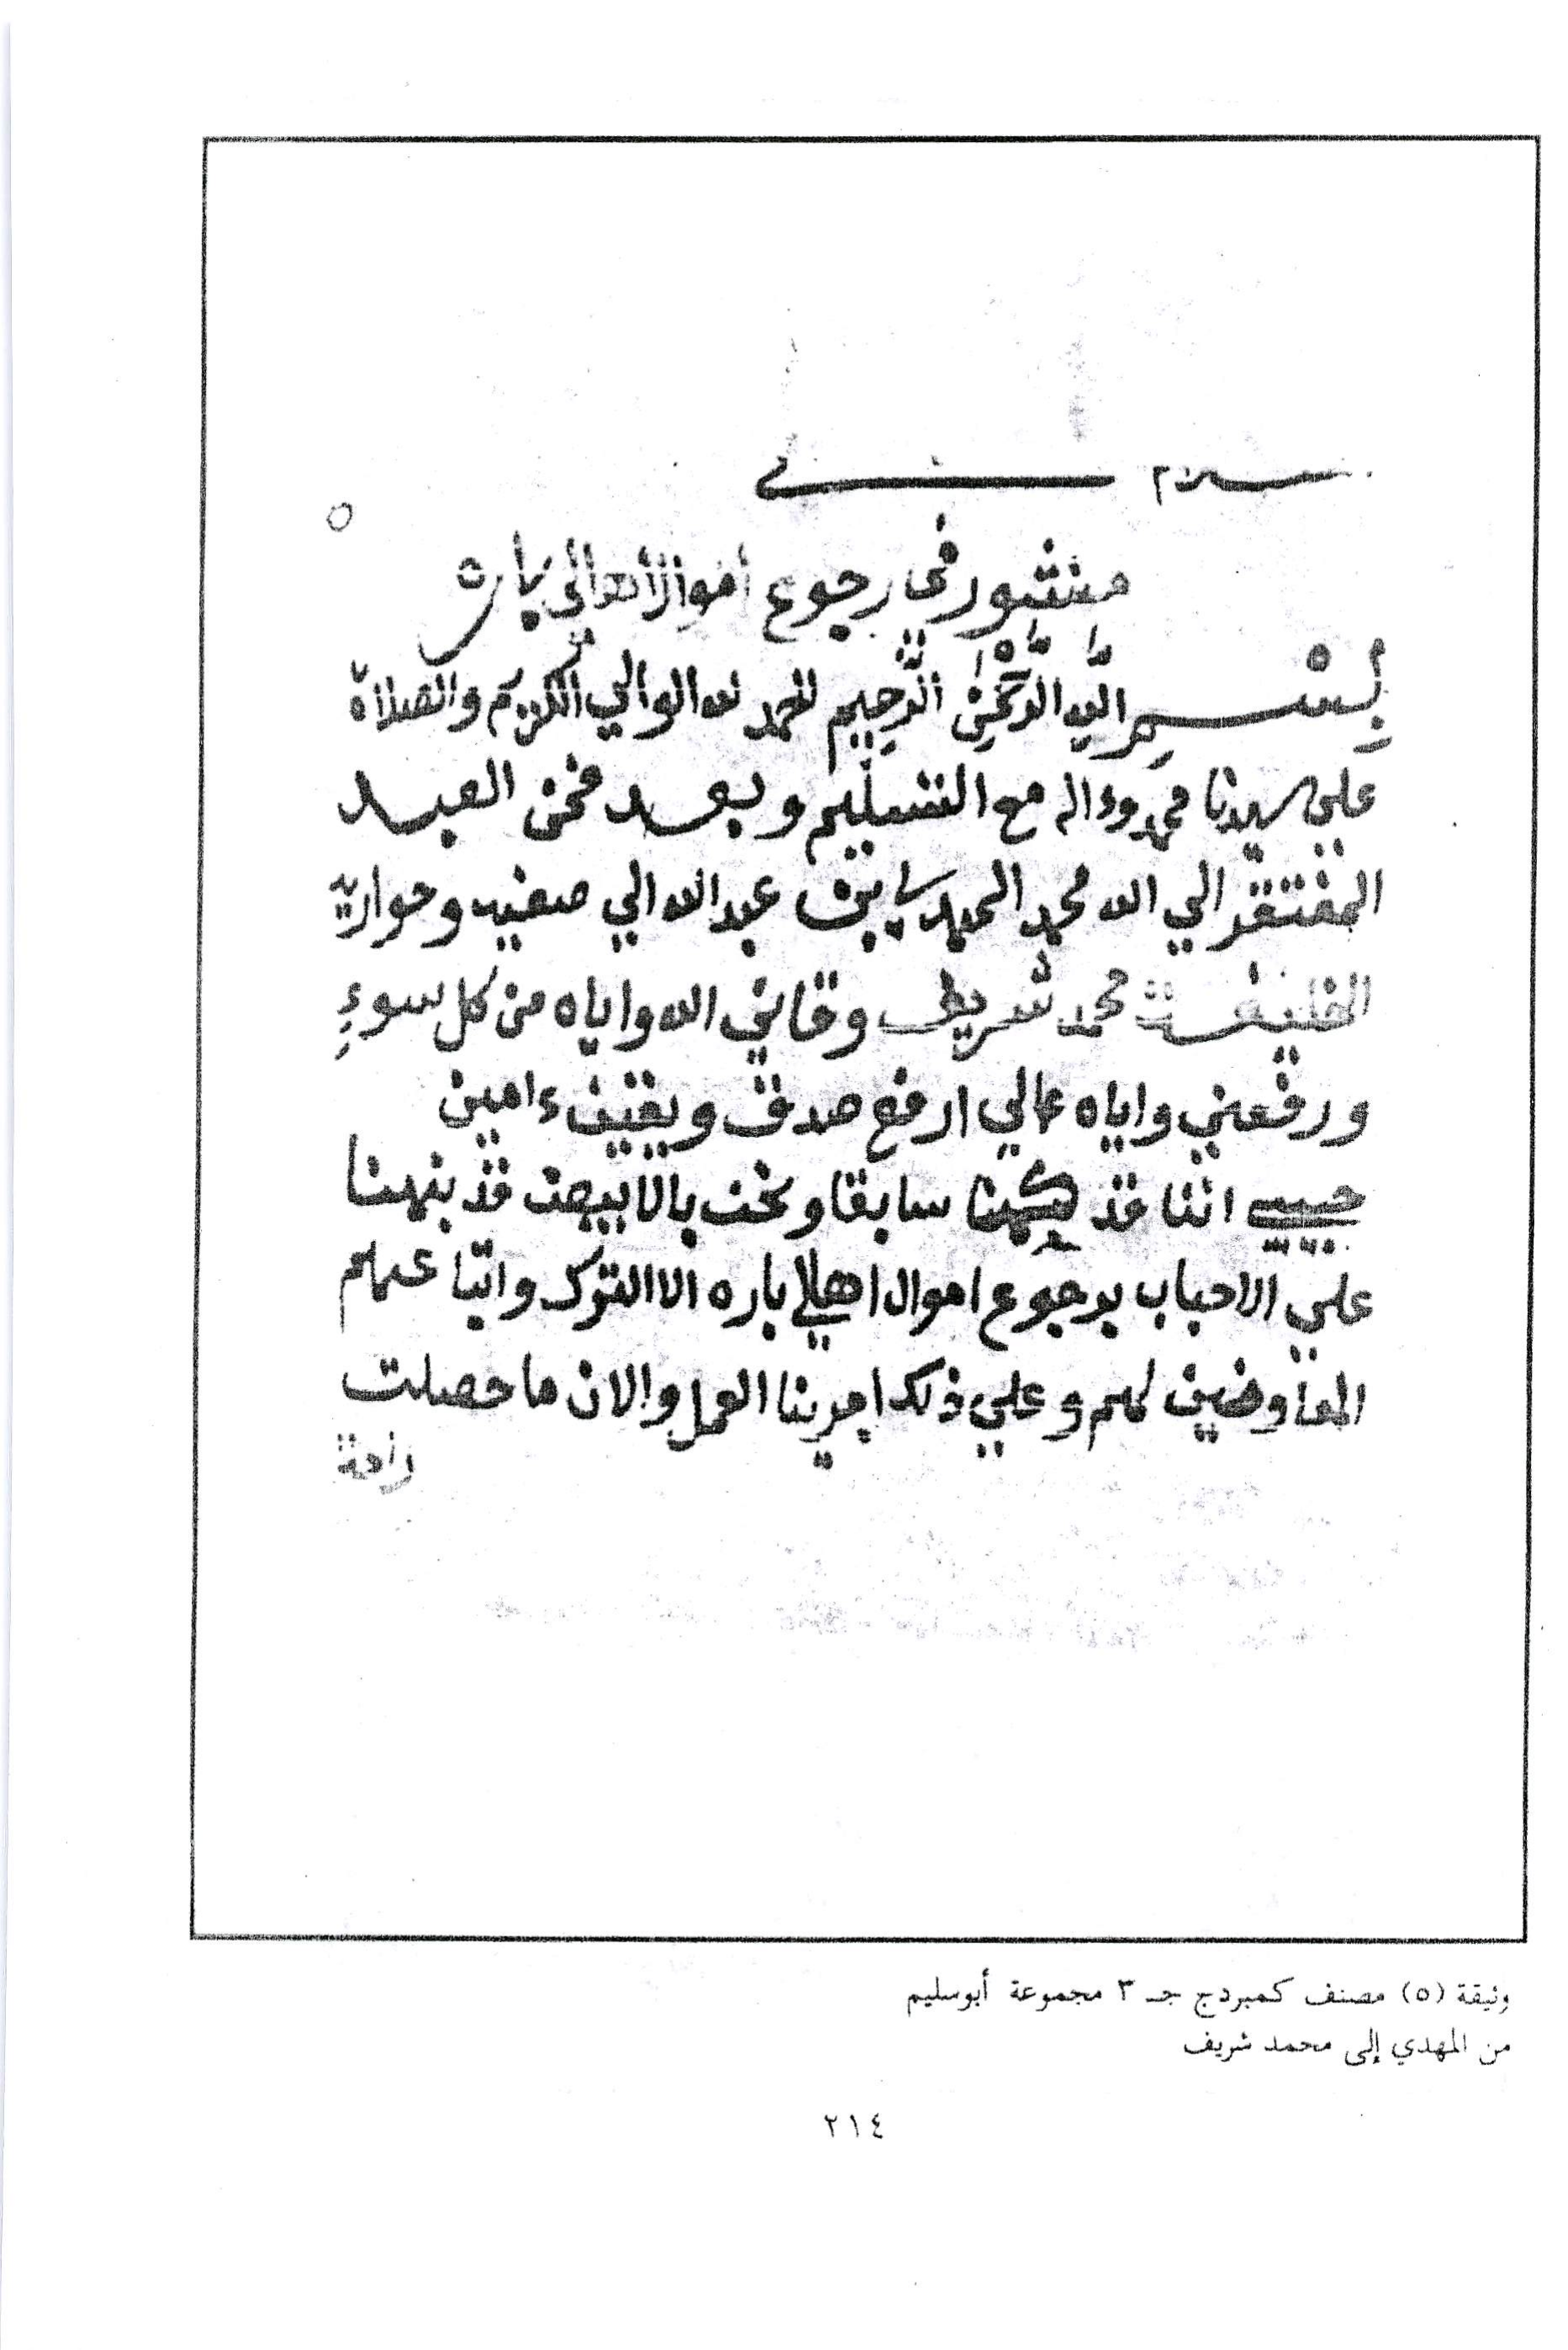 سلام
منشور في رجوع اموال اهالي باره
بسم الله الرحمن الرحيم الحمد لله الوالي الكريم والصلاة
علي سيدنا محمد وءاله مع التسليم وبعد فمن العبد
المفتقر الي الله محمد المهدي بن عبد الله الي صفيه وحواريه
الخليفة محمد شريف وقاني الله واياه من كل سوء
ورفعني واياه عالي ارفع صدق ويقين ءامين
حبيبي اننا قد سابقا ونحن بالابيض قد بنهنا
علي الاحباب برجوع اموال اهالي باره الا الترك واتباعهم
المعاوضين لهم وعلي ذلك اجرينا العمل والان ما حصلت
راحة
وثيقة (٥) مصنف كمبردج جـ ٣ مجموعة أبوسليم
من المهدي إلى محمد شريف
٢١٤